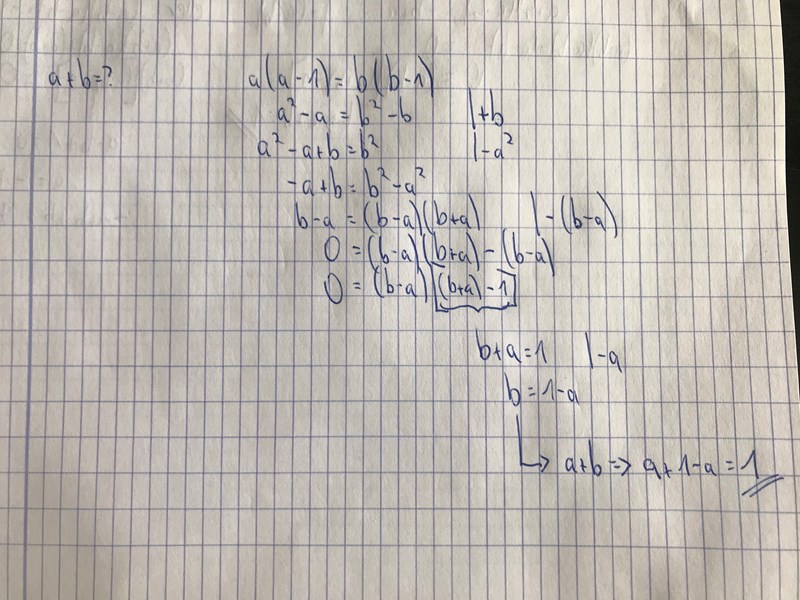 a+b=?
a(a-1)=b(b-1)
a²-a=b²-b |+b
a²-a+b=b² |-a²
-a+b=b²-a²
b-a=(b-a)(b+a) |-(b-a)
0=(b-a)(b+a)-(b-a)
0=(b-a)[(b+a)-1]
b+a=1 |-a
b=1-a
↳ a+b => a+1-a=1